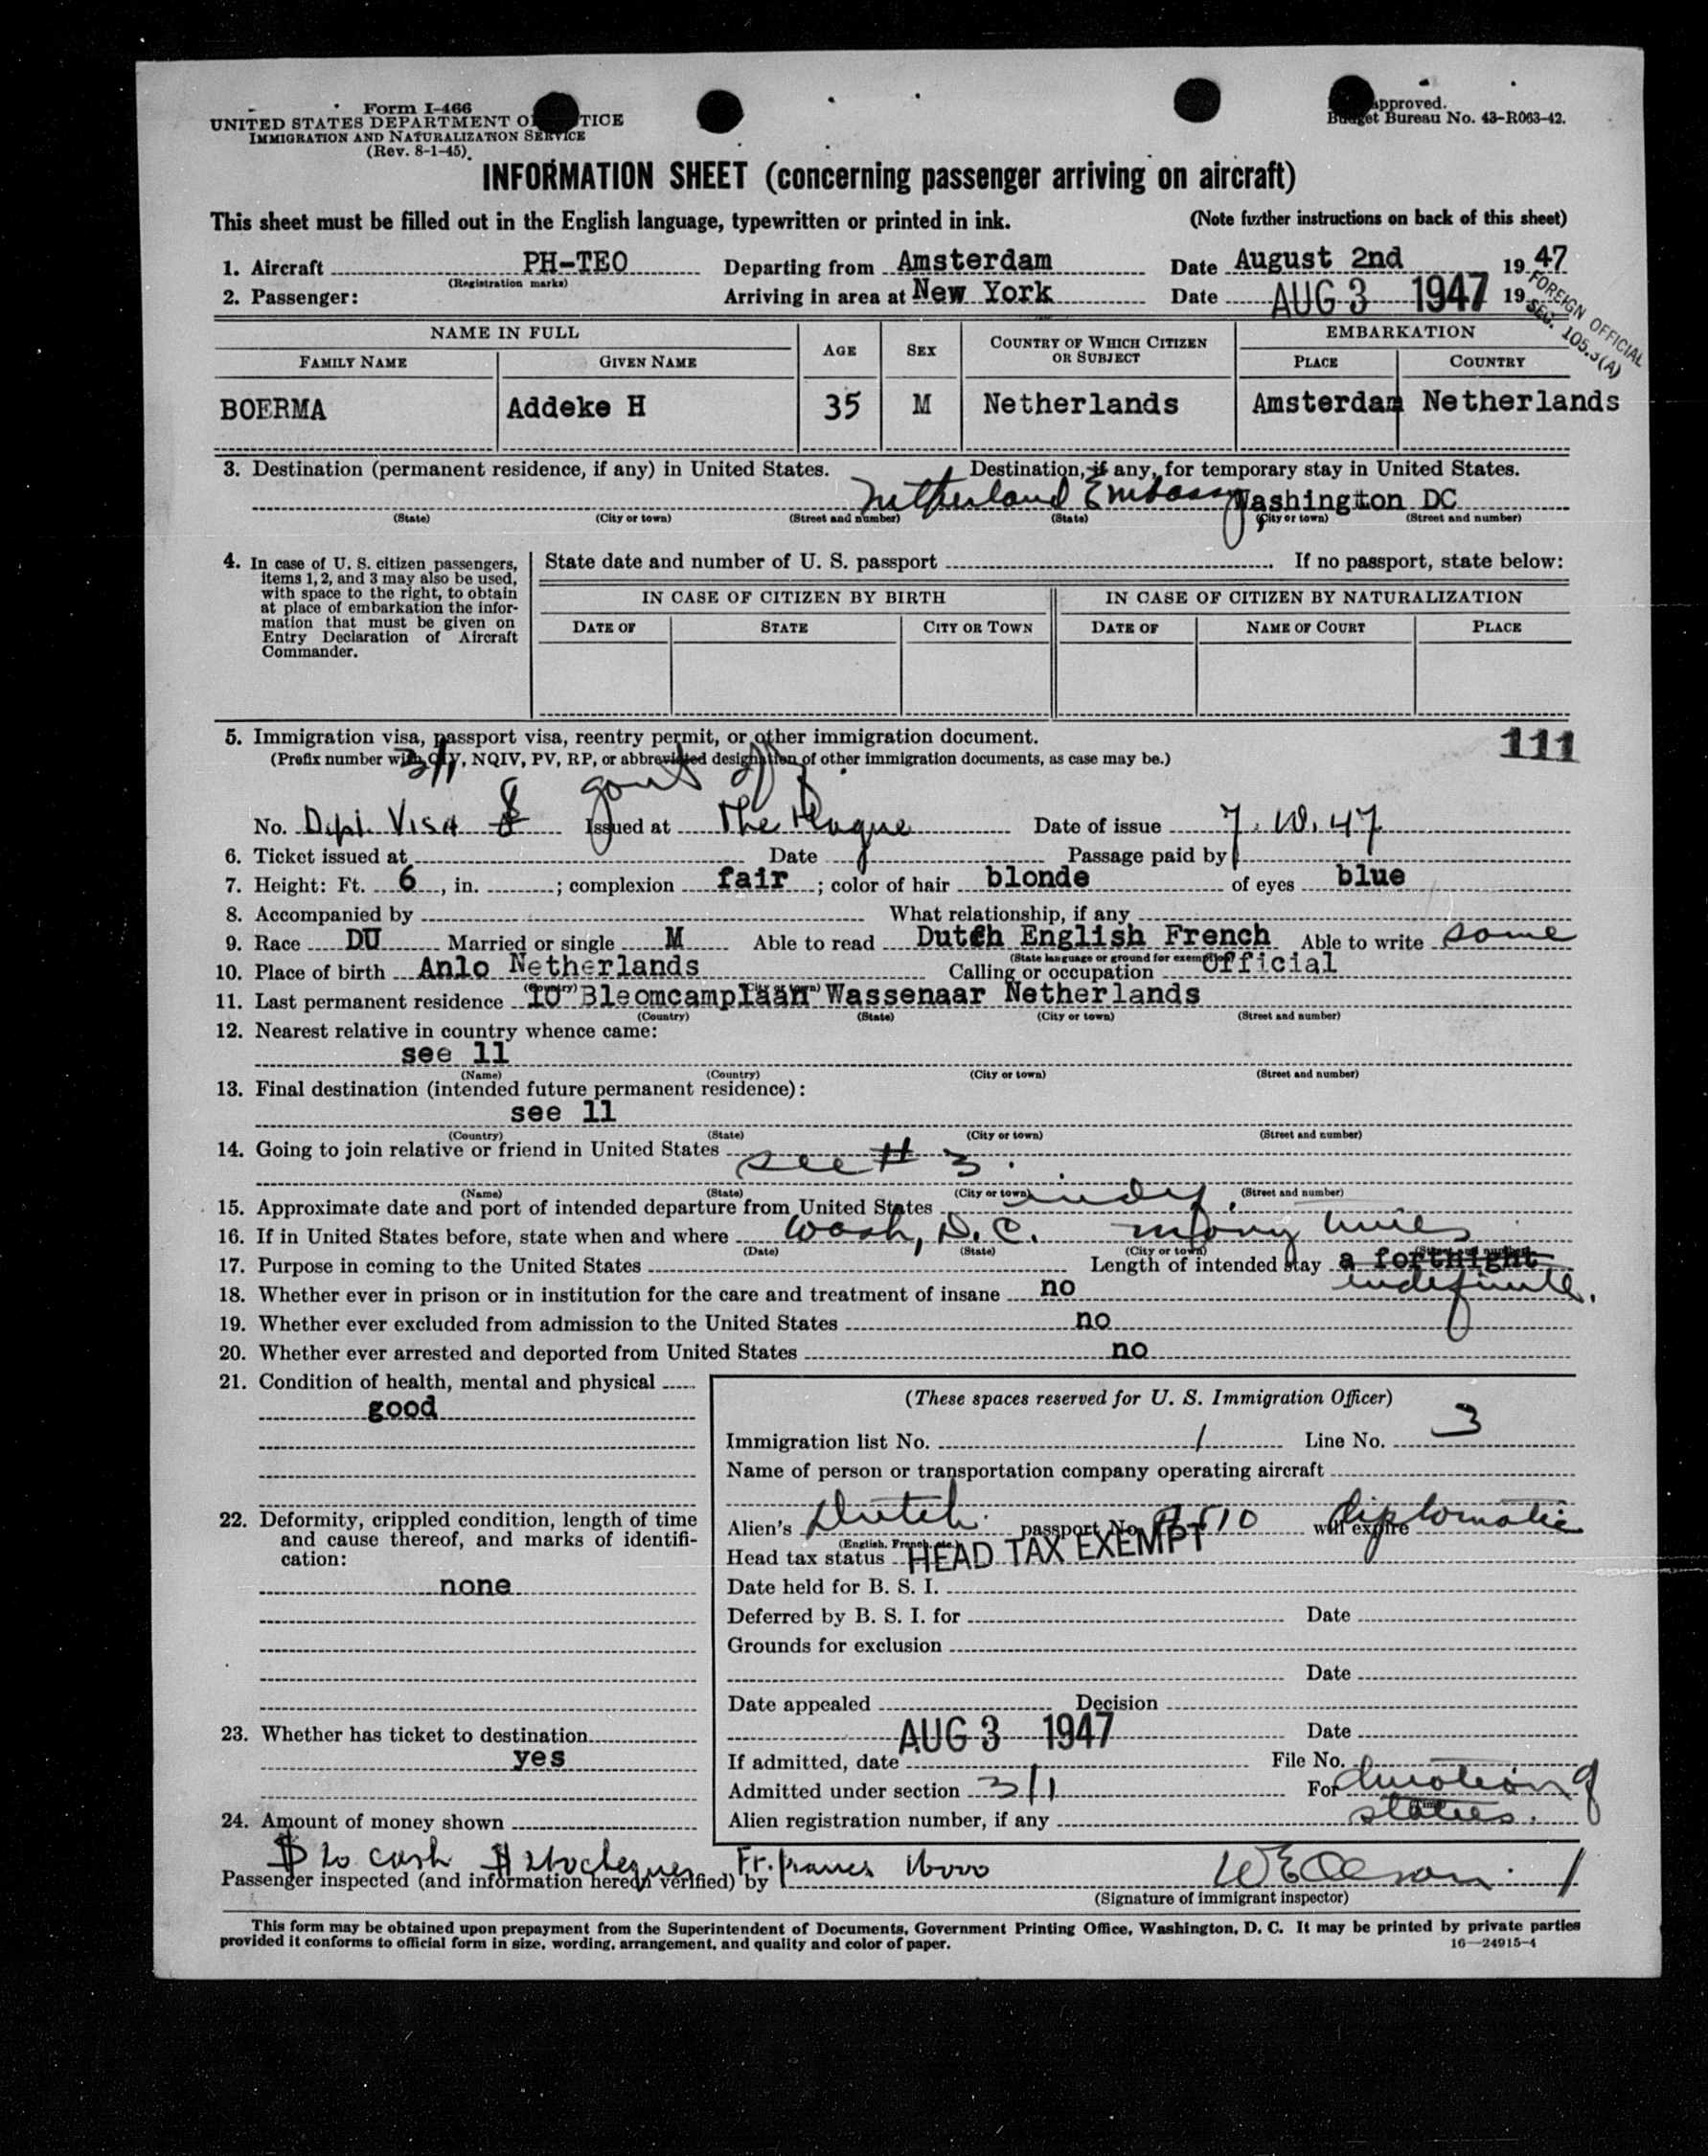 Form I-466
UNITED STATES DEPARTMENT O TICE
IMMIGRATION AND NATURALIZATION SERVICE
(Rev. 8-1-45)
approved.
Budget Bureau No. 43-R063-42.
INFORMATION SHEET (concerning passenger arriving on aircraft)
This sheet must be filled out in the English language, typewritten or printed in ink. (Note further instructions on back of this sheet)
1. Aircraft PH-TEO Departing from Amsterdam Date August 2nd 1947
(Registration marks)
2. Passenger: Arriving in area at New York Date AUG 3 1947 19
FOREIGN OFFICIAL
SEC. 105.3(A)
NAME IN FULL AGE SEX COUNTRY OF WHICH CITIZEN OR SUBJECT EMBARKATION
FAMILY NAME GIVEN NAME PLACE COUNTRY
BOERMA Addeke H 35 M Netherlands Amsterdam Netherlands
3. Destination (permanent residence, if any) in United States. Destination, if any, for temporary stay in United States.
Netherland Embassy Washington DC
(State) (City or town) (Street and number) (State) (City or town) (Street and number)
4. In case of U. S. citizen passengers, items 1, 2, and 3 may also be used, with space to the right, to obtain at place of embarkation the information that must be given on Entry Declaration of Aircraft Commander.
State date and number of U. S. passport If no passport, state below:
IN CASE OF CITIZEN BY BIRTH IN CASE OF CITIZEN BY NATURALIZATION
DATE OF STATE CITY OR TOWN DATE OF NAME OF COURT PLACE
5. Immigration visa, passport visa, reentry permit, or other immigration document. 111
(Prefix number with QIV, NQIV, PV, RP, or abbreviated designation of other immigration documents, as case may be.)
3/1 gout off
No. Dipl. Visa 8 Issued at The Hague Date of issue 7.10.47
6. Ticket issued at Date Passage paid by
7. Height: Ft. 6, in. ; complexion fair; color of hair blonde of eyes blue
8. Accompanied by What relationship, if any
9. Race DU Married or single M Able to read Dutch English French Able to write some
(State language or ground for exemption)
10. Place of birth Anlo Netherlands Calling or occupation Official
(Country) (City or town)
11. Last permanent residence 10 Bleomcamplaan Wassenaar Netherlands
(Country) (State) (City or town) (Street and number)
12. Nearest relative in country whence came:
see 11
(Name) (Country) (City or town) (Street and number)
13. Final destination (intended future permanent residence):
see 11
(Country) (State) (City or town) (Street and number)
14. Going to join relative or friend in United States see # 3
(Name) (State) (City or town) (Street and number)
15. Approximate date and port of intended departure from United States indef.
16. If in United States before, state when and where Wash, D.C. many times
(Date) (State) (City or town) (Street and number)
17. Purpose in coming to the United States Length of intended stay a fortnight
indefinite.
18. Whether ever in prison or in institution for the care and treatment of insane no
19. Whether ever excluded from admission to the United States no
20. Whether ever arrested and deported from United States no
21. Condition of health, mental and physical
good
22. Deformity, crippled condition, length of time and cause thereof, and marks of identification:
none
23. Whether has ticket to destination
yes
24. Amount of money shown
(These spaces reserved for U. S. Immigration Officer)
Immigration list No. 1 Line No. 3
Name of person or transportation company operating aircraft
Alien's Dutch passport No. will expire diplomatic
(English, French, etc.)
Head tax status HEAD TAX EXEMPT
Date held for B. S. I.
Deferred by B. S. I. for Date
Grounds for exclusion
Date
Date appealed Decision
Date
If admitted, date AUG 3 1947 File No.
Admitted under section 3/1 For duration of
status.
Alien registration number, if any
$ 20 cash Fr. francs 16000
Passenger inspected (and information hereon verified) by W E Olson 1
(Signature of immigrant inspector)
This form may be obtained upon prepayment from the Superintendent of Documents, Government Printing Office, Washington, D. C. It may be printed by private parties
provided it conforms to official form in size, wording, arrangement, and quality and color of paper. 16—24915-4